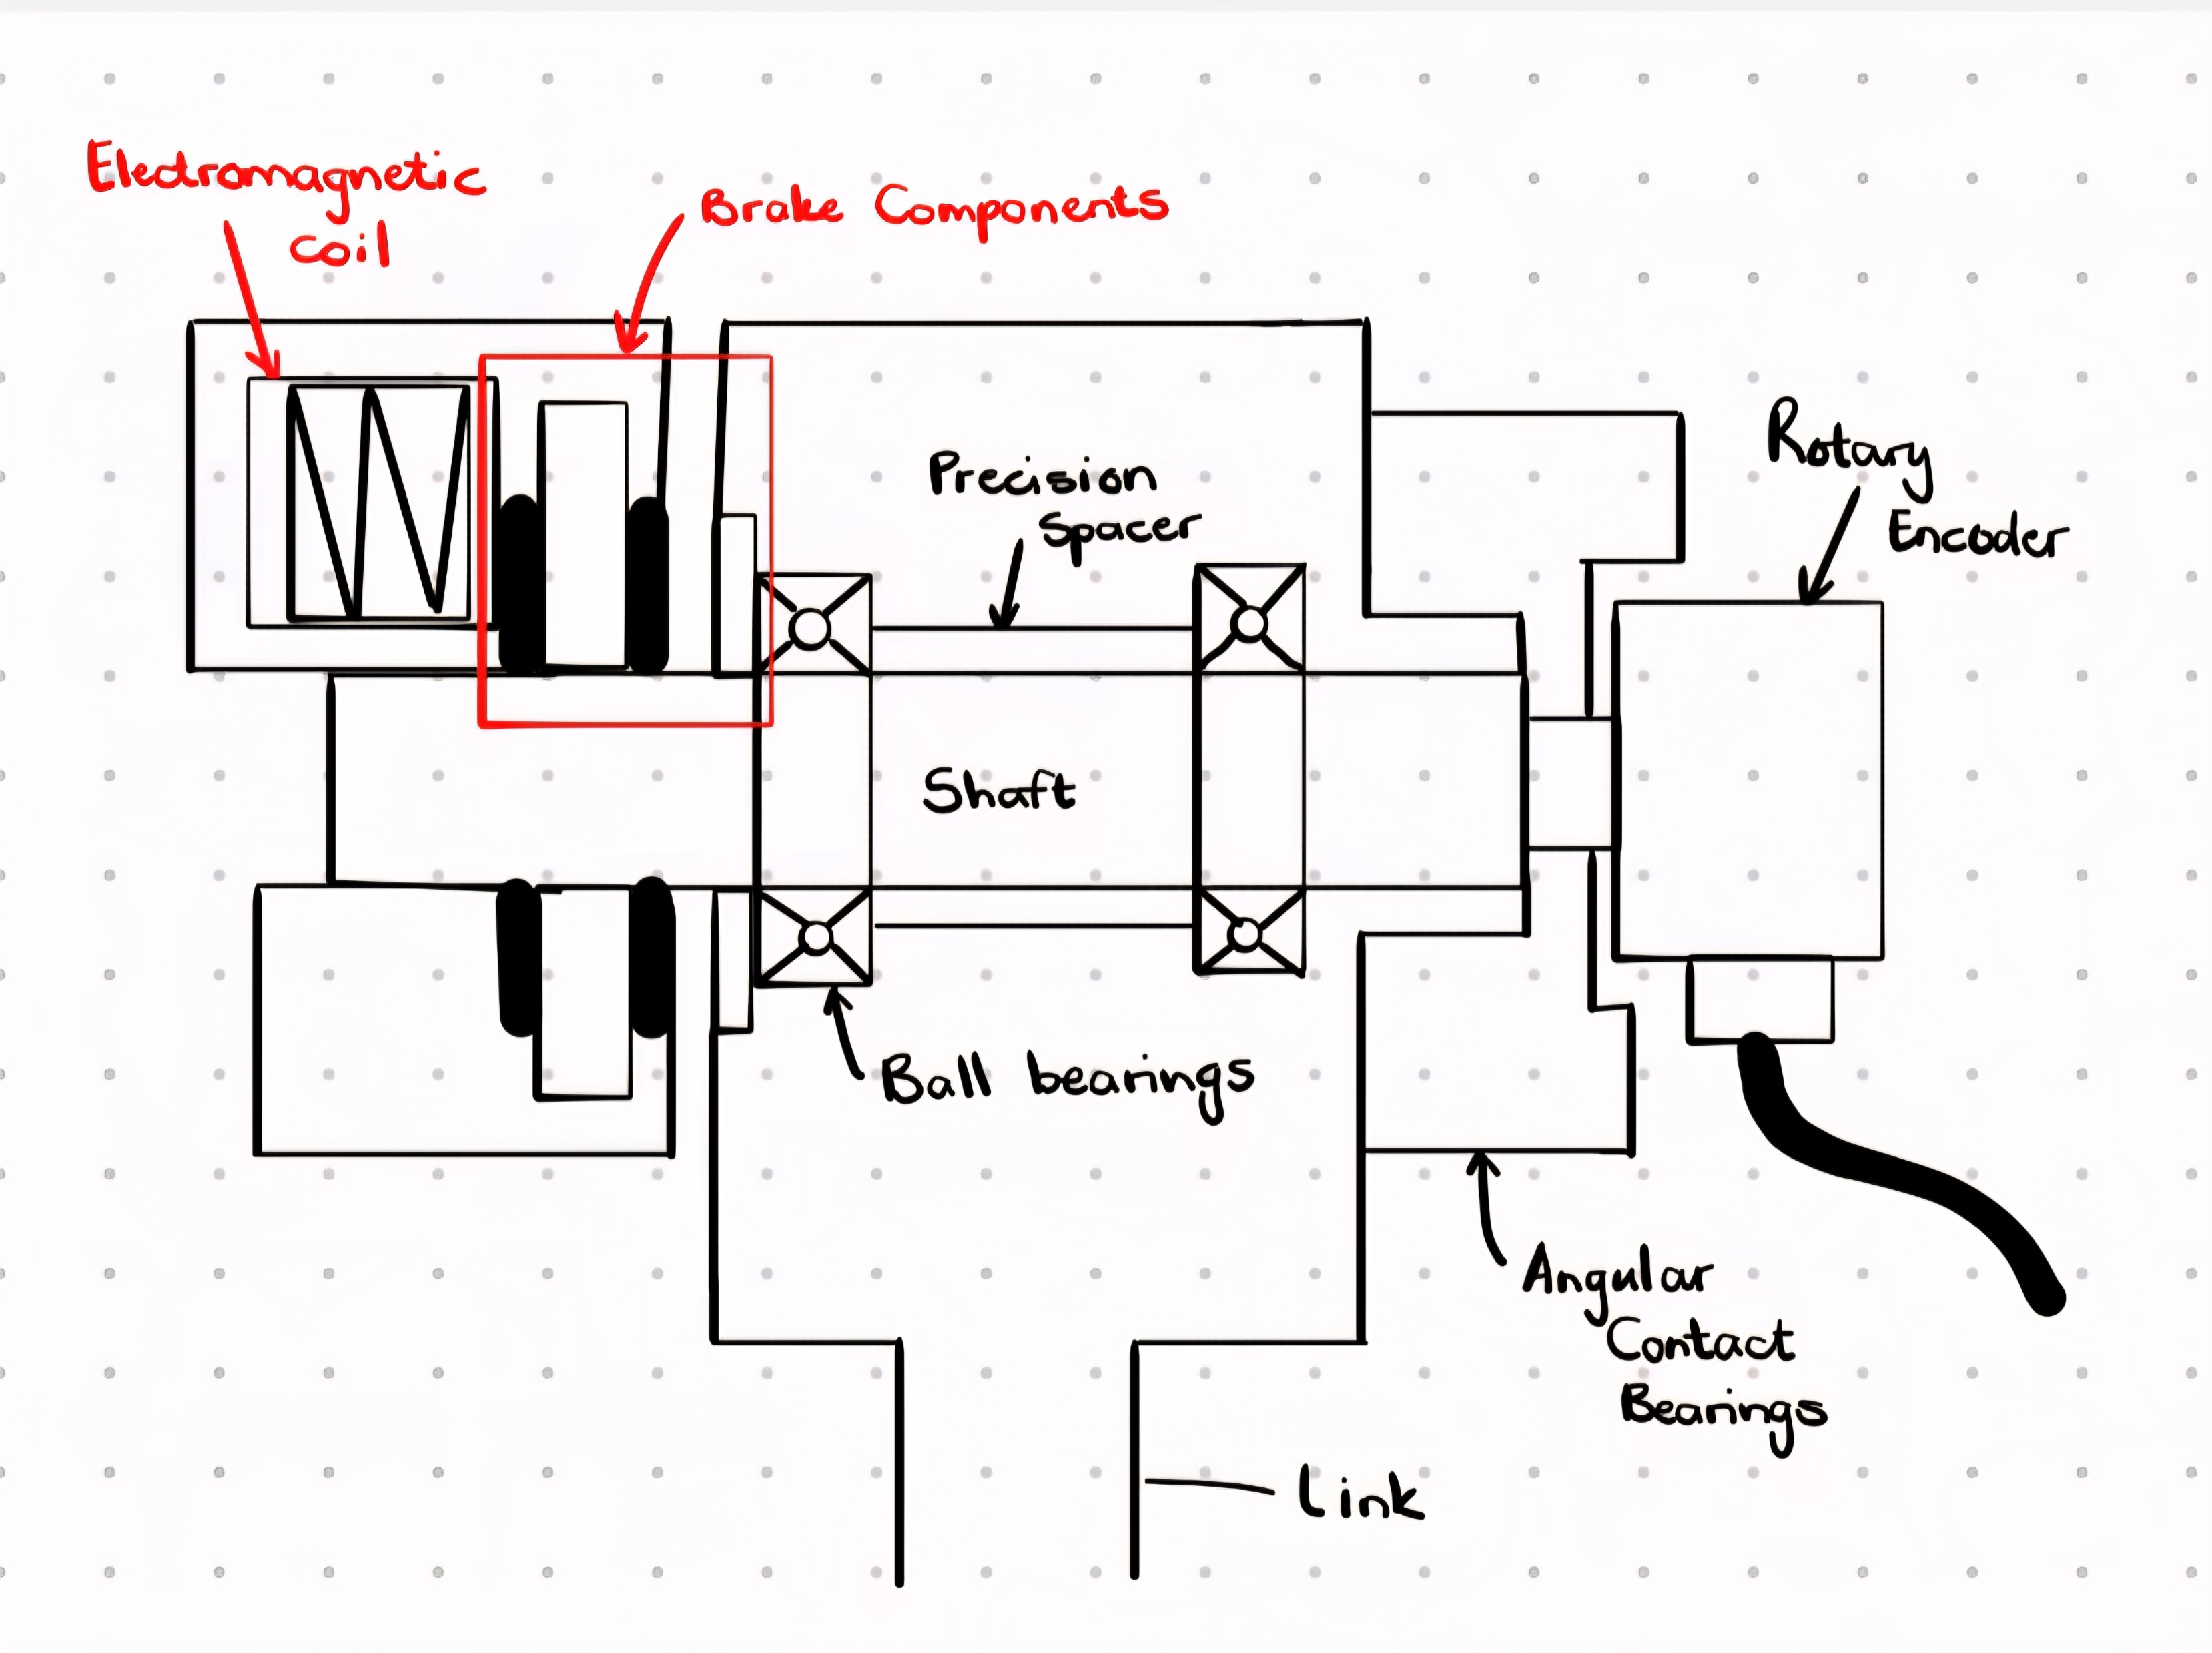 Electromagnetic
coil
Brake Components
Precision
Spacer
Rotary
Encoder
Shaft
Ball bearings
Angular
Contact
Bearings
Link